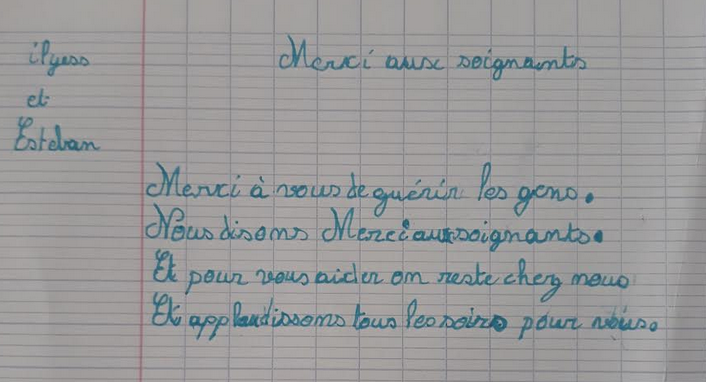 ilyess
et
Esteban
Merci aux soignants
Merci à vous de guérir les gens.
Nous disons Merci aux soignants.
Et pour vous aider on reste chez nous
Et applaudissons tous les soirs pour vous.